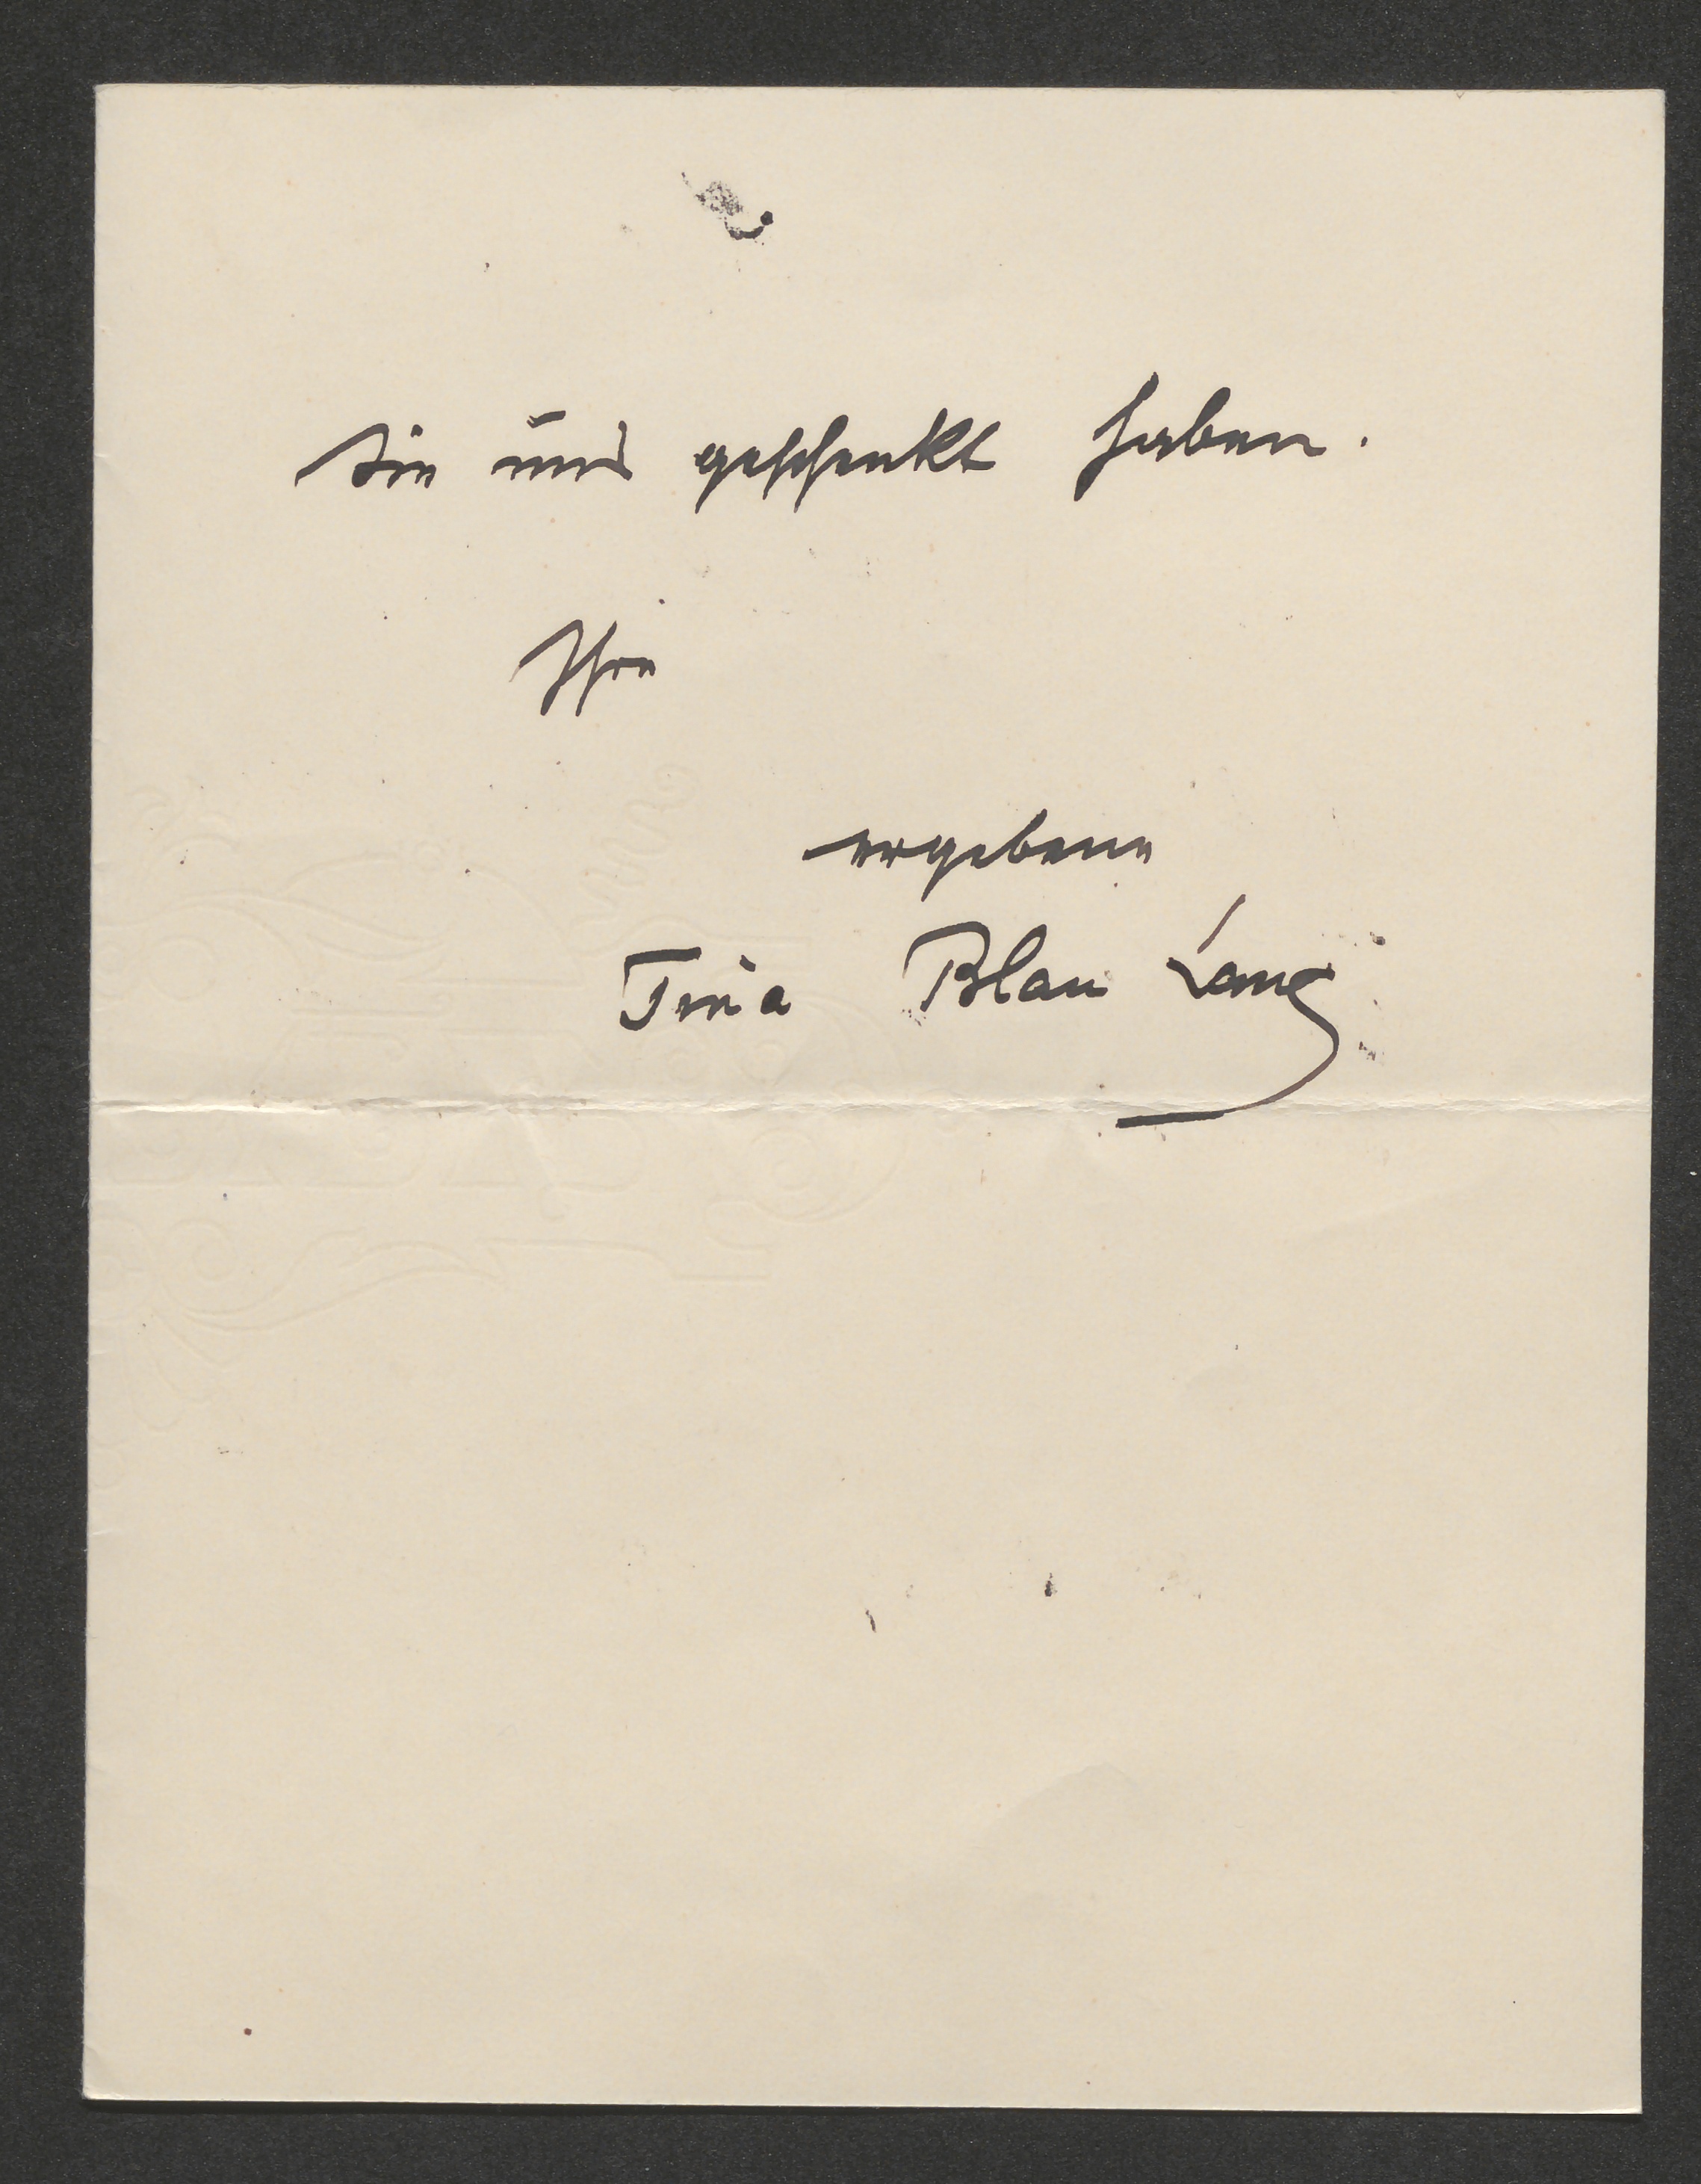 Sie uns geschenkt haben.
Ihre
ergebene
Tina Blau Lang